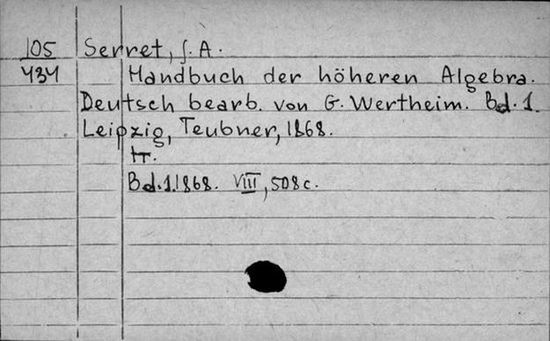 105 Serret, J. A.
434 Handbuch der höheren Algebra.
Deutsch bearb. von G. Wertheim. Bd. 1.
Leipzig, Teubner, 1868.
Bd. 1. 1868. VIII, 508 c.